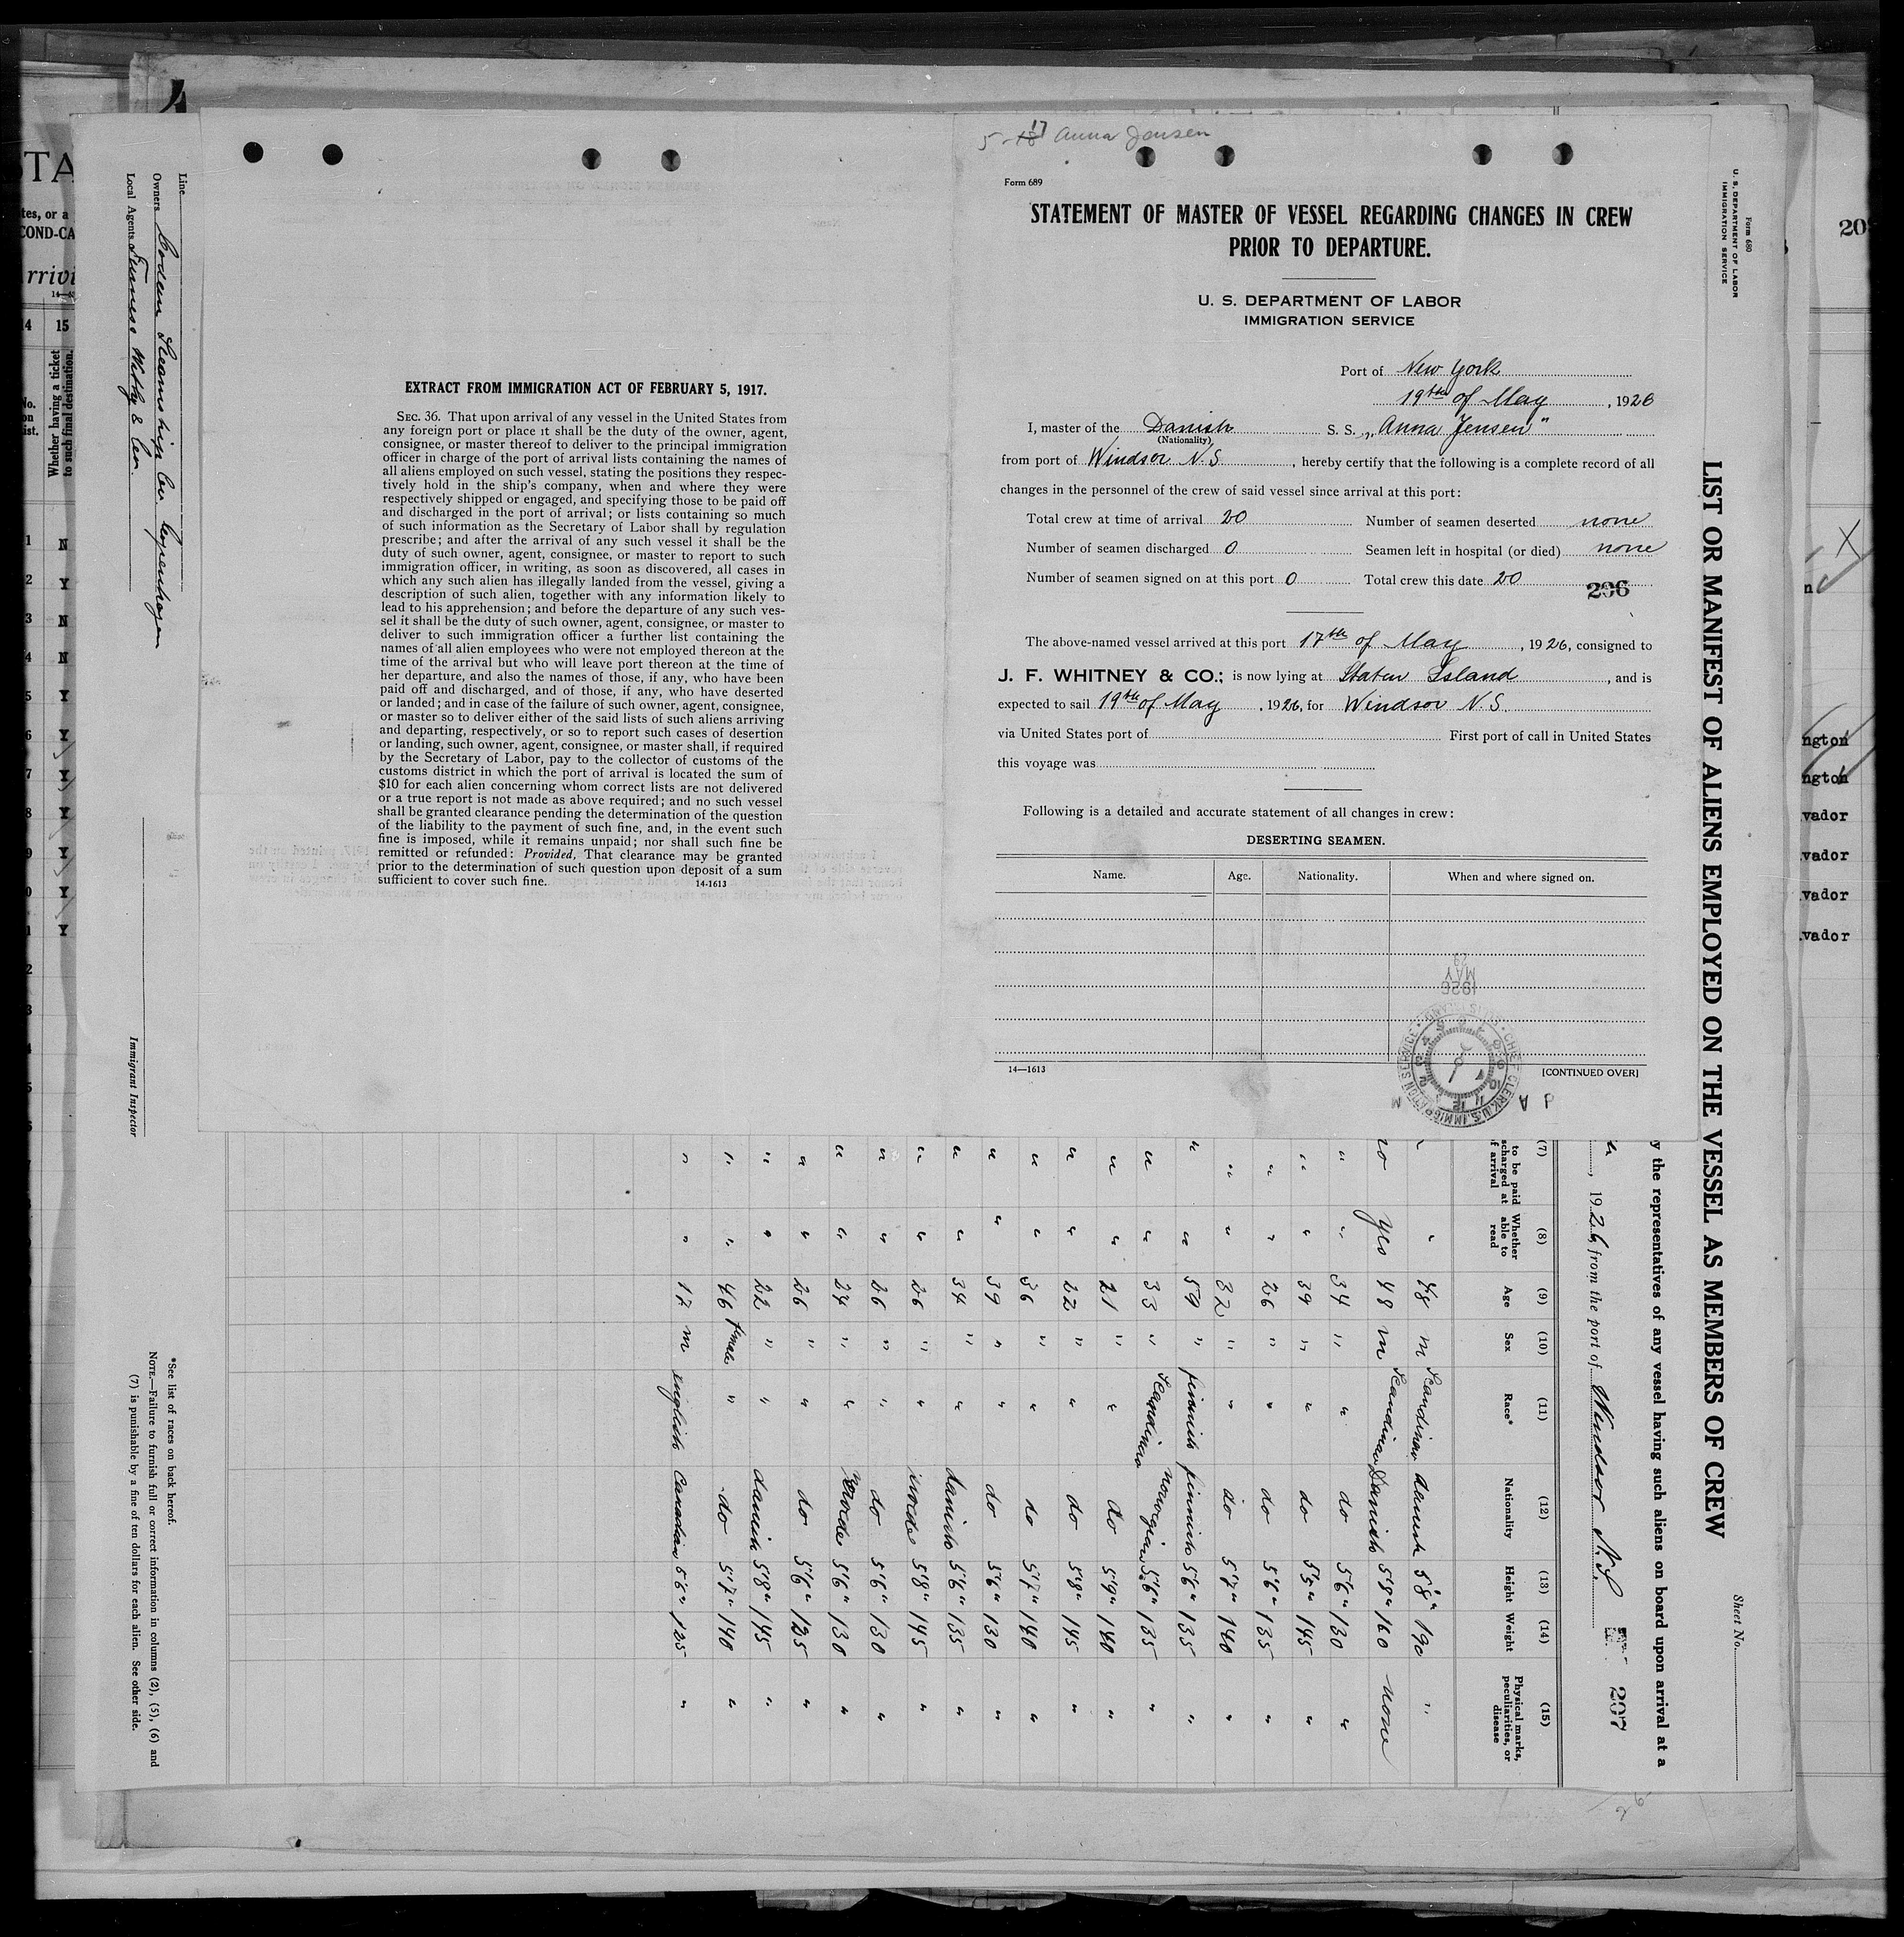 5-18 17 Anna Jensen
Form 689
STATEMENT OF MASTER OF VESSEL REGARDING CHANGES IN CREW
PRIOR TO DEPARTURE.
U. S. DEPARTMENT OF LABOR
IMMIGRATION SERVICE
Port of New York
19th of May, 1926
I, master of the Danish S. S. „Anna Jensen"
(Nationality)
from port of Windsor N.S., hereby certify that the following is a complete record of all
changes in the personnel of the crew of said vessel since arrival at this port:
Total crew at time of arrival 20 Number of seamen deserted none
Number of seamen discharged 0 Seamen left in hospital (or died) none
Number of seamen signed on at this port 0 Total crew this date 20
206
The above-named vessel arrived at this port 17th of May, 1926, consigned to
J. F. WHITNEY & CO.; is now lying at Staten Island, and is
expected to sail 19th of May, 1926, for Windsor N.S.
via United States port of First port of call in United States
this voyage was
Following is a detailed and accurate statement of all changes in crew:
DESERTING SEAMEN.
Name. Age. Nationality. When and where signed on.
MAY 29 1926
14—1613
[CONTINUED OVER]
EXTRACT FROM IMMIGRATION ACT OF FEBRUARY 5, 1917.
SEC. 36. That upon arrival of any vessel in the United States from
any foreign port or place it shall be the duty of the owner, agent,
consignee, or master thereof to deliver to the principal immigration
officer in charge of the port of arrival lists containing the names of
all aliens employed on such vessel, stating the positions they respec-
tively hold in the ship's company, when and where they were
respectively shipped or engaged, and specifying those to be paid off
and discharged in the port of arrival; or lists containing so much
of such information as the Secretary of Labor shall by regulation
prescribe; and after the arrival of any such vessel it shall be the
duty of such owner, agent, consignee, or master to report to such
immigration officer, in writing, as soon as discovered, all cases in
which any such alien has illegally landed from the vessel, giving a
description of such alien, together with any information likely to
lead to his apprehension; and before the departure of any such ves-
sel it shall be the duty of such owner, agent, consignee, or master to
deliver to such immigration officer a further list containing the
names of all alien employees who were not employed thereon at the
time of the arrival but who will leave port thereon at the time of
her departure, and also the names of those, if any, who have been
paid off and discharged, and of those, if any, who have deserted
or landed; and in case of the failure of such owner, agent, consignee,
or master so to deliver either of the said lists of such aliens arriving
and departing, respectively, or so to report such cases of desertion
or landing, such owner, agent, consignee, or master shall, if required
by the Secretary of Labor, pay to the collector of customs of the
customs district in which the port of arrival is located the sum of
$10 for each alien concerning whom correct lists are not delivered
or a true report is not made as above required; and no such vessel
shall be granted clearance pending the determination of the question
of the liability to the payment of such fine, and, in the event such
fine is imposed, while it remains unpaid; nor shall such fine be
remitted or refunded: Provided, That clearance may be granted
prior to the determination of such question upon deposit of a sum
sufficient to cover such fine.
14-1613
Form 680
U. S. DEPARTMENT OF LABOR
IMMIGRATION SERVICE
Sheet No.
LIST OR MANIFEST OF ALIENS EMPLOYED ON THE VESSEL AS MEMBERS OF CREW
y the representatives of any vessel having such aliens on board upon arrival at a
, 1926, from the port of Windsor N.S. 207
(7) (8) (9) (10) (11) (12) (13) (14) (15)
to be paid scharged at f arrival Whether able to read Age Sex Race* Nationality Height Weight Physical marks, peculiarities, or disease
" 48 m Scandinav danish 5'8" 190 "
no yes 48 m Scandinav Danish 5'8" 160 none
" " 34 " " do 5'6" 130 "
" " 39 " " do 5'5" 145 "
" " 26 " " do 5'6" 135 "
" " 32 " " do 5'7" 140 "
" " 59 " finnish finnish 5'6" 135 "
" " 33 " Scandinav norwegian 5'6" 135 "
" " 21 " " do 5'9" 140 "
" " 22 " " do 5'8" 145 "
" " 36 " " do 5'7" 140 "
" " 39 " " do 5'6" 130 "
" " 34 " " danish 5'6" 135 "
" " 26 " " 5'8" 145 "
" " 26 " " do 5'6" 130 "
" " 24 " " 5'6" 130 "
" " 26 " " do 5'6" 125 "
" " 22 " " danish 5'8" 145 "
" " 46 female " do 5'7" 140 "
" " 17 m english Canadian 5'6" 125 "
*See list of races on back hereof.
NOTE.—Failure to furnish full or correct information in columns (2), (5), (6) and
(7) is punishable by a fine of ten dollars for each alien. See other side.
Immigrant Inspector
Line
Owners Steamship Co. Copenhagen
Local Agents Furness Withy & Co.